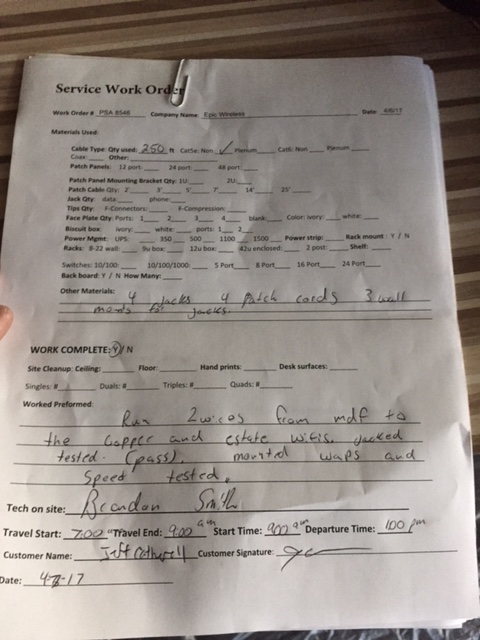 Service Work Order
Work Order # PSA 8546 Company Name Epic Wireless Date: 4/6/17
Materials Used:
Cable Type: Qty used: 250 ft Cat5e: Non ✓ Plenum ____ Cat6: Non ____ Plenum ____
Coax: ____ Other: ____
Patch Panels: 12 port: ____ 24 port: ____ 48 port: ____
Patch Panel Mounting Bracket Qty: 1U: ____ 2U: ____
Patch Cable Qty: 2' ____ 3' ____ 5' ____ 7' ____ 14' ____ 25' ____
Jack Qty: data: ____ phone: ____
Tips Qty: F-Connectors: ____ F-Compression: ____
Face Plate Qty: Ports: 1 ____ 2 ____ 3 ____ 4 ____ blank: ____ Color: ivory: ____ white: ____
Biscuit box: ivory: ____ white: ____ ports: 1 ____ 2 ____
Power Mgmt: UPS: ____ 350 ____ 500 ____ 1100 ____ 1500 ____ Power strip: ____ Rack mount: Y / N
Racks: 8-22 wall: ____ 9u box: ____ 12u box: ____ 42u enclosed: ____ 2 post: ____ Shelf: ____
Switches: 10/100: ____ 10/100/1000: ____ 5 Port ____ 8 Port ____ 16 Port ____ 24 Port ____
Back board: Y / N How Many: ____
Other Materials:
4 Jacks 4 patch cords 3 wall
mounts for jacks.
WORK COMPLETE: Y / N
Site Cleanup: Ceiling: ____ Floor: ____ Hand prints: ____ Desk surfaces: ____
Singles: # ____ Duals: # ____ Triples: # ____ Quads: # ____
Worked Preformed:
Run 2 wires from mdf to
the Copper and estate wifis. Jacked
tested. (pass). mounted waps and
Speed tested.
Tech on site: Brandon Smith
Travel Start: 7:00 Travel End: 9:00 am Start Time: 900 am Departure Time: 100 pm
Customer Name: Jeff Customer Signature:
Date: 4-7-17